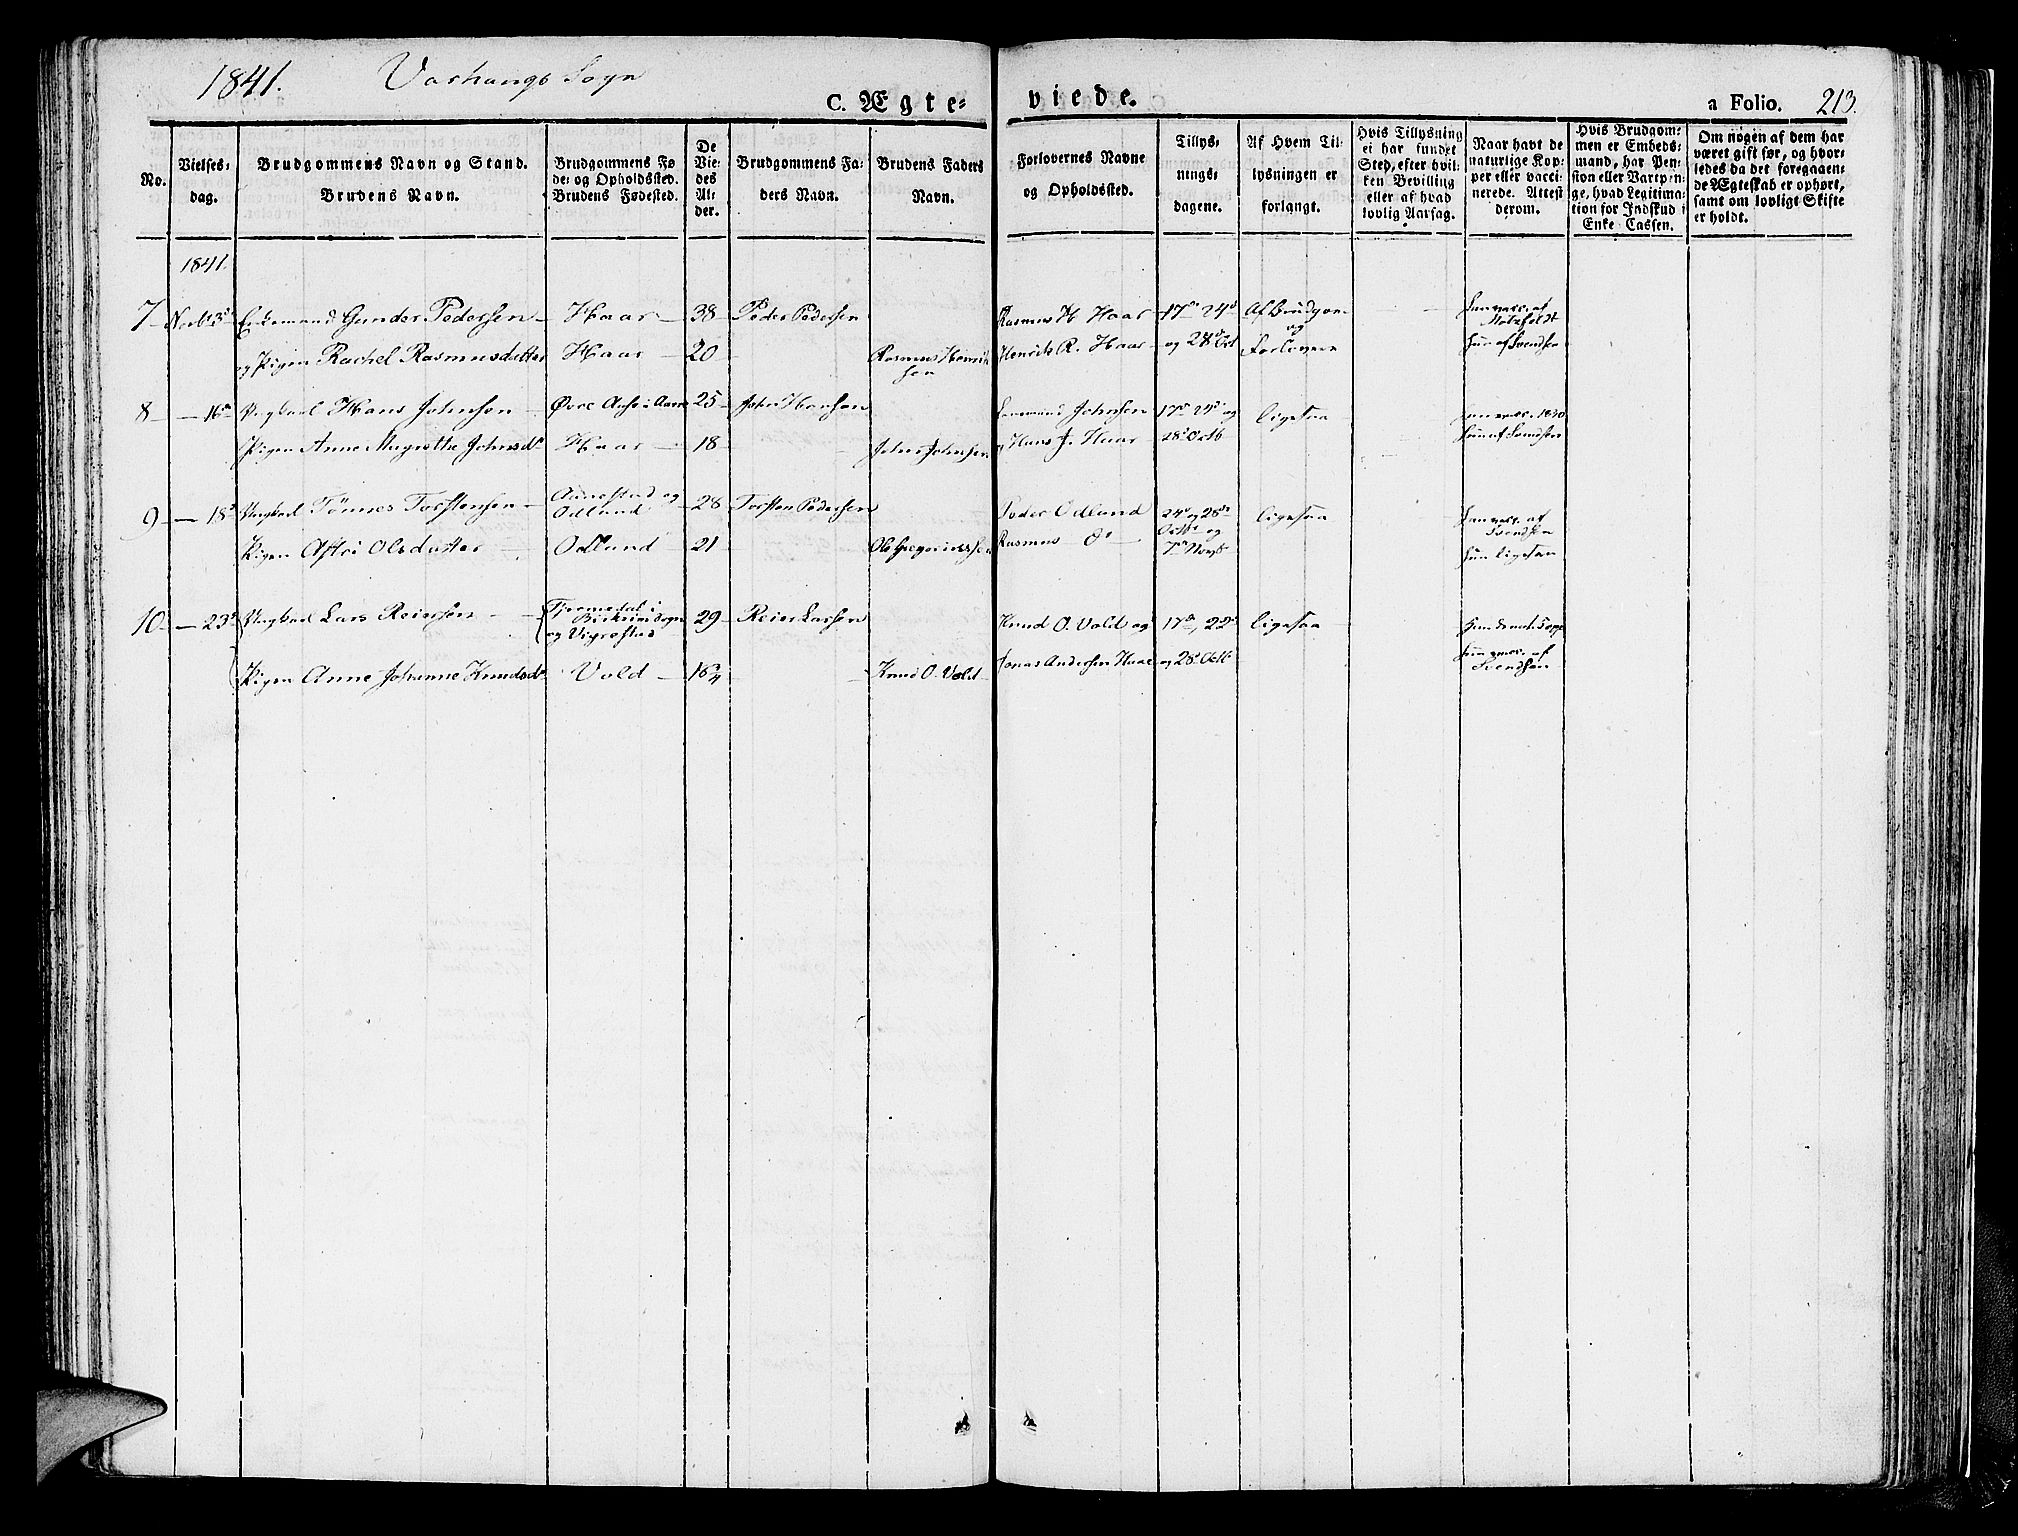 1841. Varhougs Sogn
C. Ægte- viede. a Folio. 213.
No.
Vielses-
dag.
Brudgommens Navn og Stand.
Brudens Navn.
Brudgommens Fø
de- og Opholdssted.
Brudens Fødested.
De
Vie-
des
Al-
der.
Brudgommens Fa-
ders Navn.
Brudens Faders
Navn.
Forlovernes Navne
og Opholdssted.
Tillys-
nings-
dagene.
Af Hvem Til-
lysningen er
forlangt.
Hvis Tillysning
ei har fundet
Sted, efter hvil-
ken Bevilling
eller af hvad
lovlig Aarsag.
Naar havt de
naturlige Kop-
per eller vacci-
nerede. Attest
derom.
Hvis Brudgom-
men er Embeds-
mand, har Pen-
sion eller Vartpen-
ge, hvad Legitima-
tion for Indskud i
Enke Cassen.
Om nogen af dem har
været gift før, og hvor-
ledes da det foregaaen-
de Ægteskab er ophørt,
samt om lovligt Skifte
er holdt.
1841.
7 Novb 3d Enkemand Gunder Pedersen Haar 38 Peder Pedersen Rasmus H. Haar 17de 24de Af Brudgom
og Pigen Rachel Rasmusdatter Haar 20 Rasmus Henrik
sen Henrik R. Haar og 28de Oct og Forlovere Hun af Svendsen
8 16de Ungkarl Hans Johnsen 25 John Hansen Johnsen 17de 24de og ligesaa
Pigen Anne Margrethe Johnsd Haar 18 John Johnsen Hans J. Haar 28de Octb Hun af Svendsen
9 18de Ungkarl Tönnes Torstensen Aanestad og
Odland 28 Torsten Pedersen Peder Odland 24de og 28de ligesaa
Pigen Olsdatter Odland 21 Ole Gregoriussen Rasmus Do Octb og
7de Novb Hun ligesaa
10 23de Ungkarl Lars Reiersen i
Sogn
og Vigrestad 29 Reier Larsen Knud O. Vold og 17de, 22de ligesaa
Pigen Anne Johanne Knudsd Vold 18 Knud O. Vold Jonas Andersen Haar og 28de Octb Hun vacc. af
Svendsen